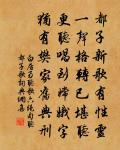 都子新歌有性靈
一聲格轉已堪聽
更聽唱到嫦娥字
猶有樊家舊典刑
白居易聽歌六絕句聽
都子歌詞典網集